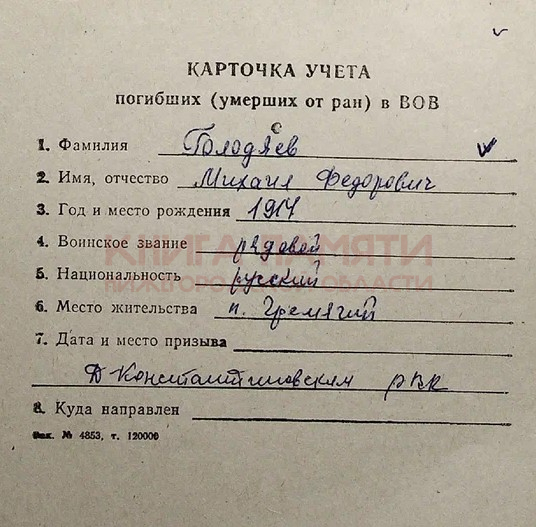 КАРТОЧКА УЧЕТА
погибших (умерших от ран) в ВОВ
1. Фамилия Голодяев
2. Имя, отчество Михаил Федорович
3. Год и место рождения 1917
4. Воинское звание рядовой
КНИГА ПАМЯТИ
5. Национальность русский
НИЖЕГОРОДСКОЙ ОБЛАСТИ
6. Место жительства п. Гремячий
7. Дата и место призыва
Д Константиновским РВК
8. Куда направлен
Зак. № 4853, т. 120000